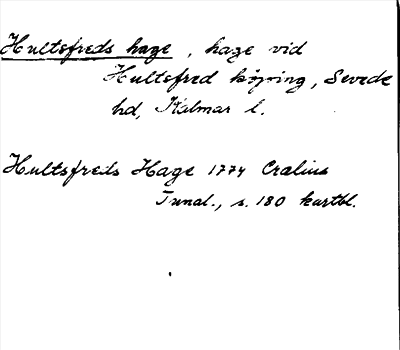 Hultsfreds hage, hage vid
Hultsfred köping, Sevede
hd, Kalmar l.
Hultsfreds Hage 1774 Craelius
Tunal., s. 180 kartbl.